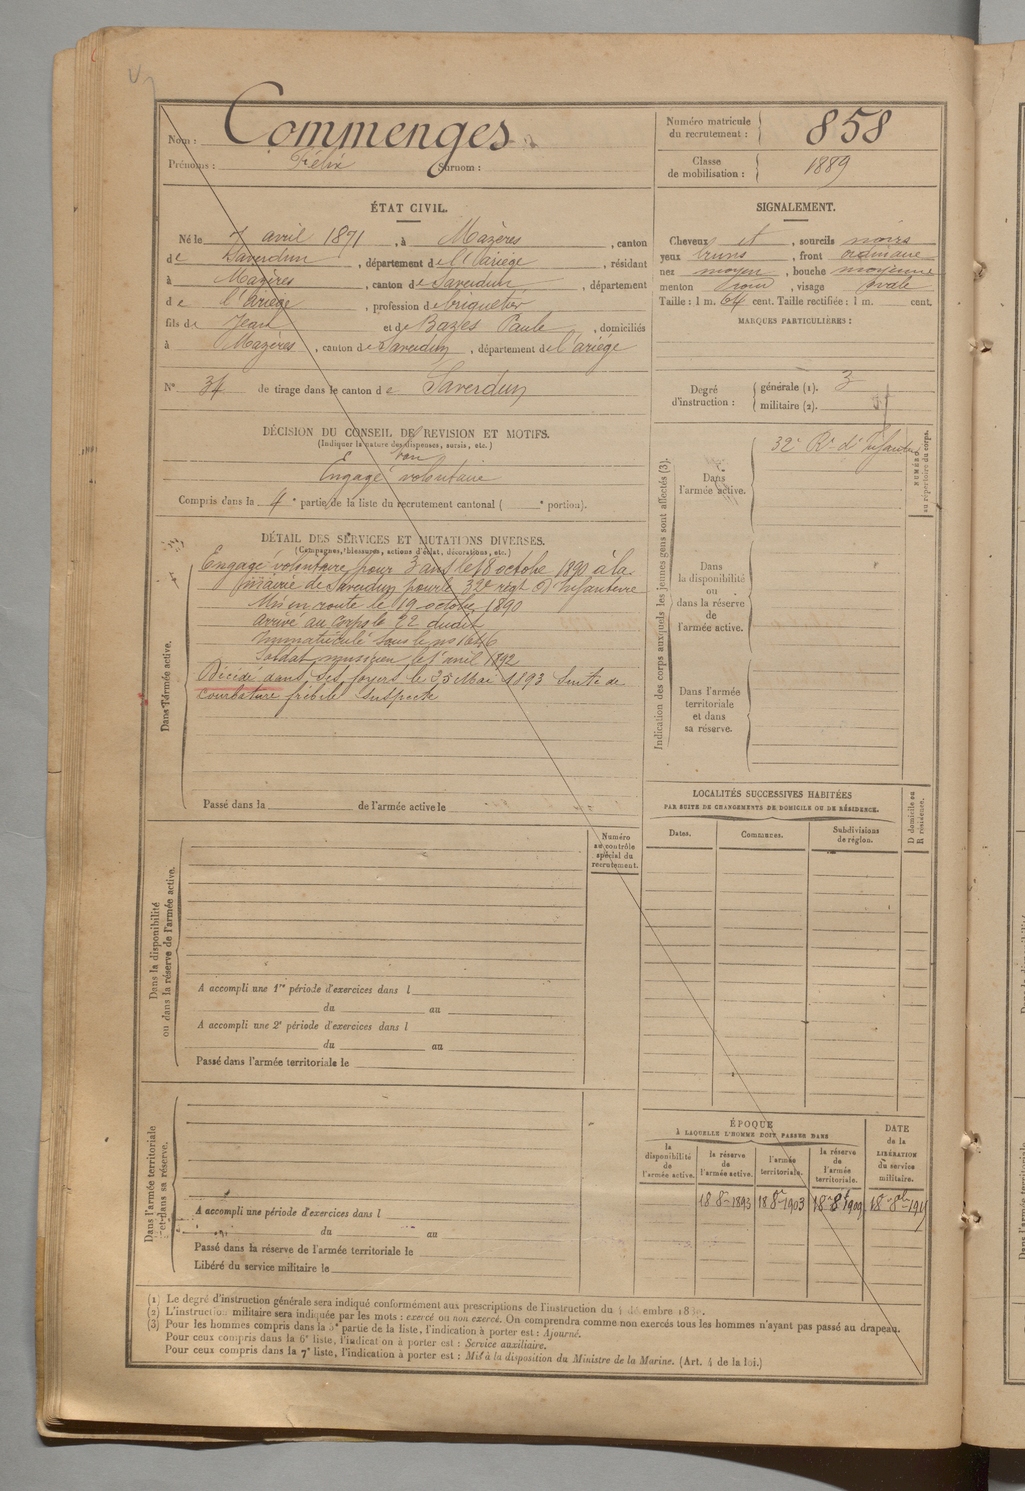 Nom : Commenges
Prénoms : Félix Surnom :
Numéro matricule du recrutement : 858
Classe de mobilisation : 1889
ÉTAT CIVIL.
Né le 7 avril 1871, à Mazères, canton
de Saverdun, département de l'Ariège, résidant
à Mazères, canton de Saverdun, département
de l'Ariège, profession de briquetier
fils de Jean et de Bazes Paule, domiciliés
à Mazères, canton de Saverdun, département de l'ariège
N° 34 de tirage dans le canton de Saverdun
SIGNALEMENT.
Cheveux et, sourcils noirs
yeux bruns, front ordinaire
nez moyen, bouche moyenne
menton rond, visage ovale
Taille : 1 m. 64 cent. Taille rectifiée : 1 m. cent.
MARQUES PARTICULIÈRES :
Degré d'instruction : générale (1). 3
militaire (2).
DÉCISION DU CONSEIL DE REVISION ET MOTIFS.
(Indiquer la nature des dispenses, sursis, etc.)
Bon
Engagé volontaire
Compris dans la 4e partie de la liste du recrutement cantonal ( e portion).
DÉTAIL DES SERVICES ET MUTATIONS DIVERSES.
(Campagnes, blessures, actions d'éclat, décorations, etc.)
Dans l'armée active.
Engagé volontaire pour 3 ans le 18 octobre 1890 à la
mairie de Saverdun pour le 32e régt d'Infanterie
Mis en route le 19 octobre 1890
arrivé au corps le 22 dudit
Immatriculé sous le no 1646
Soldat musicien le 1er avril 1892
Décédé dans ses foyers le 25 Mai 1893 suite de
courbature fébrile suspecte
Passé dans la de l'armée active le
Indication des corps auxquels les jeunes gens sont affectés (3).
Dans l'armée active.
32e Rt d'Infanterie
NUMÉRO au répertoire du corps.
Dans la disponibilité ou dans la réserve de l'armée active.
Dans l'armée territoriale et dans sa réserve.
LOCALITÉS SUCCESSIVES HABITÉES
PAR SUITE DE CHANGEMENTS DE DOMICILE OU DE RÉSIDENCE.
Dates. Communes. Subdivisions de région. D domicile ou R résidence.
Dans la disponibilité ou dans la réserve de l'armée active.
Numéro au contrôle spécial du recrutement.
A accompli une 1re période d'exercices dans l
du au
A accompli une 2e période d'exercices dans l
du au
Passé dans l'armée territoriale le
Dans l'armée territoriale et dans sa réserve.
A accompli une période d'exercices dans l
du au
Passé dans la réserve de l'armée territoriale le
Libéré du service militaire le
ÉPOQUE
À LAQUELLE L'HOMME DOIT PASSER DANS
la disponibilité de l'armée active.
la réserve de l'armée active.
l'armée territoriale.
la réserve de l'armée territoriale.
DATE de la LIBÉRATION du service militaire.
18 8bre 1893 18 8bre 1903 18 8bre 1909 18 8bre
(1) Le degré d'instruction générale sera indiqué conformément aux prescriptions de l'instruction du
(2) L'instruction militaire sera indiquée par les mots : exercé ou non exercé. On comprendra comme non exercés tous les hommes n'ayant pas passé au drapeau.
(3) Pour les hommes compris dans la 5e partie de la liste, l'indication à porter est : Ajourné.
Pour ceux compris dans la 6e liste, l'indication à porter est : Service auxiliaire.
Pour ceux compris dans la 7e liste, l'indication à porter est : Mis à la disposition du Ministre de la Marine. (Art. 4 de la loi.)